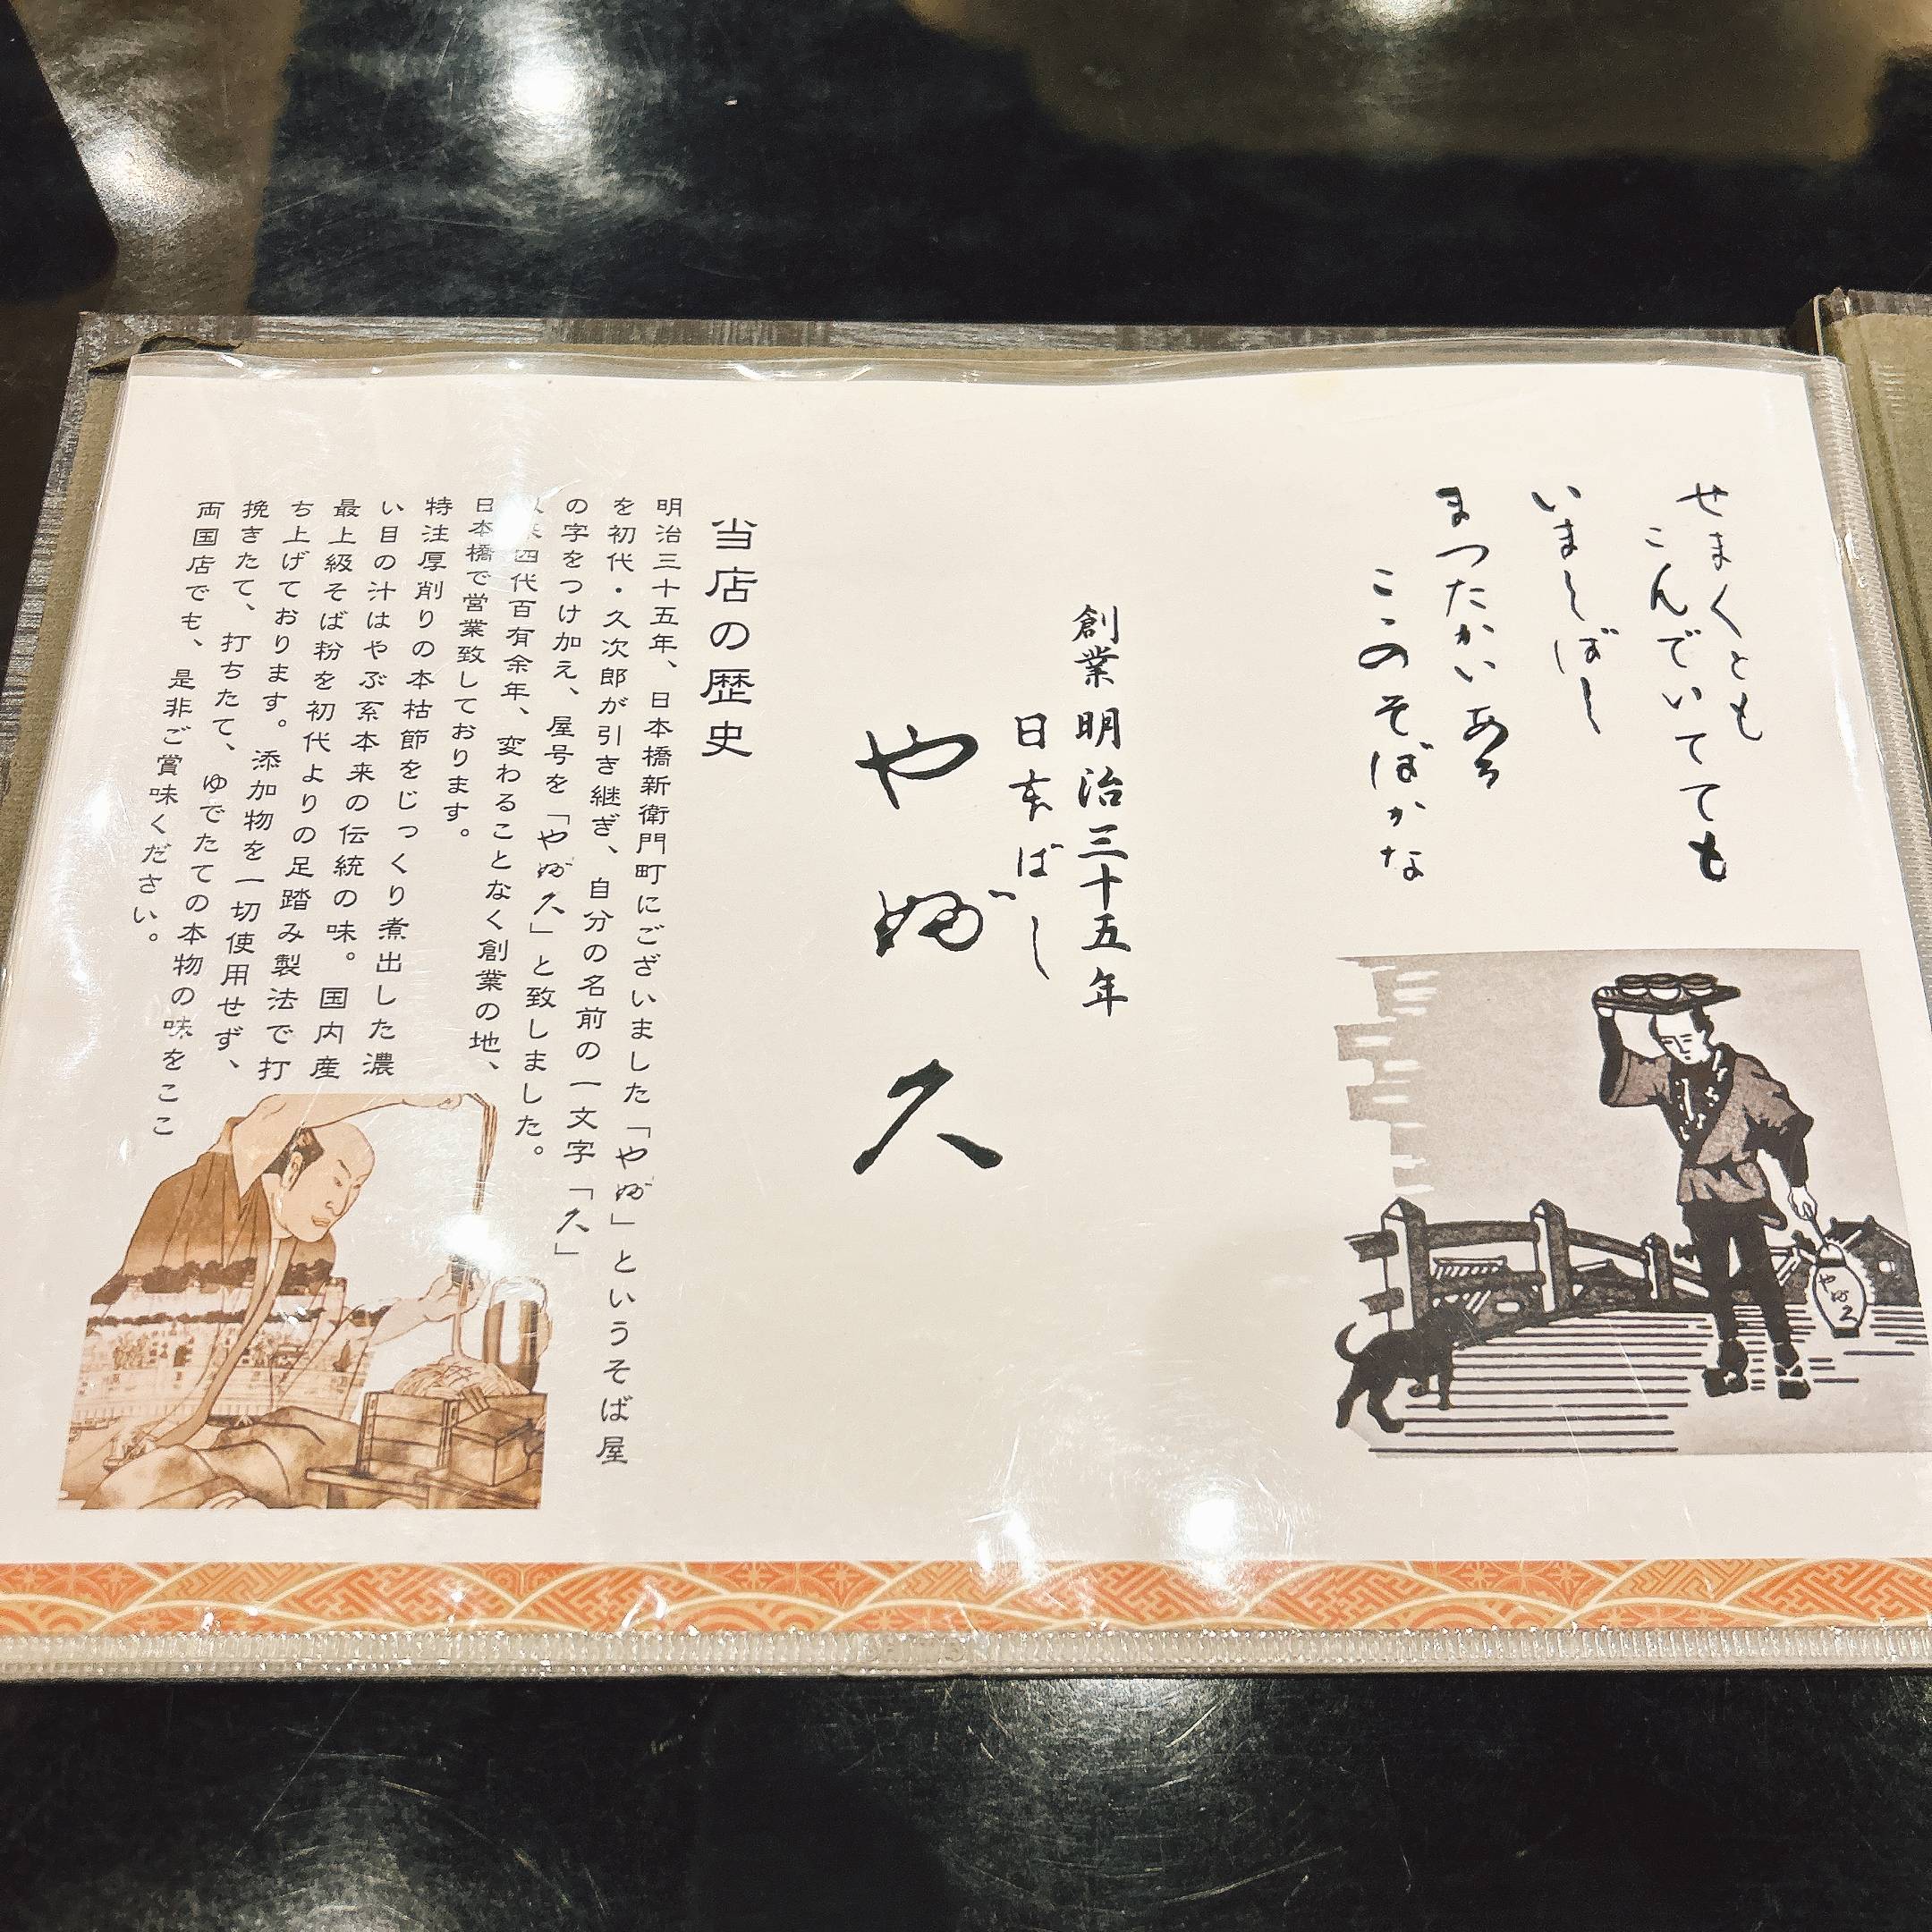 せまくとも
こんでいてても
いましばし
まつたかいある
ここのそばかな
創業 明治三十五年
日本ばし
やぶ久
当店の歴史
明治三十五年、日本橋新衛門町にございました「やぶ」というそば屋
を初代・久次郎が引き継ぎ、自分の名前の一文字「久」
の字をつけ加え、屋号を「やぶ久」と致しました。
以来四代百有余年、変わることなく創業の地、
日本橋で営業致しております。
特注厚削りの本枯節をじっくり煮出した濃
い目の汁はやぶ系本来の伝統の味。国内産
最上級そば粉を初代よりの足踏み製法で打
ち上げております。添加物を一切使用せず、
挽きたて、打ちたて、ゆでたての本物の味をここ
両国店でも、是非ご賞味ください。
やぶ久